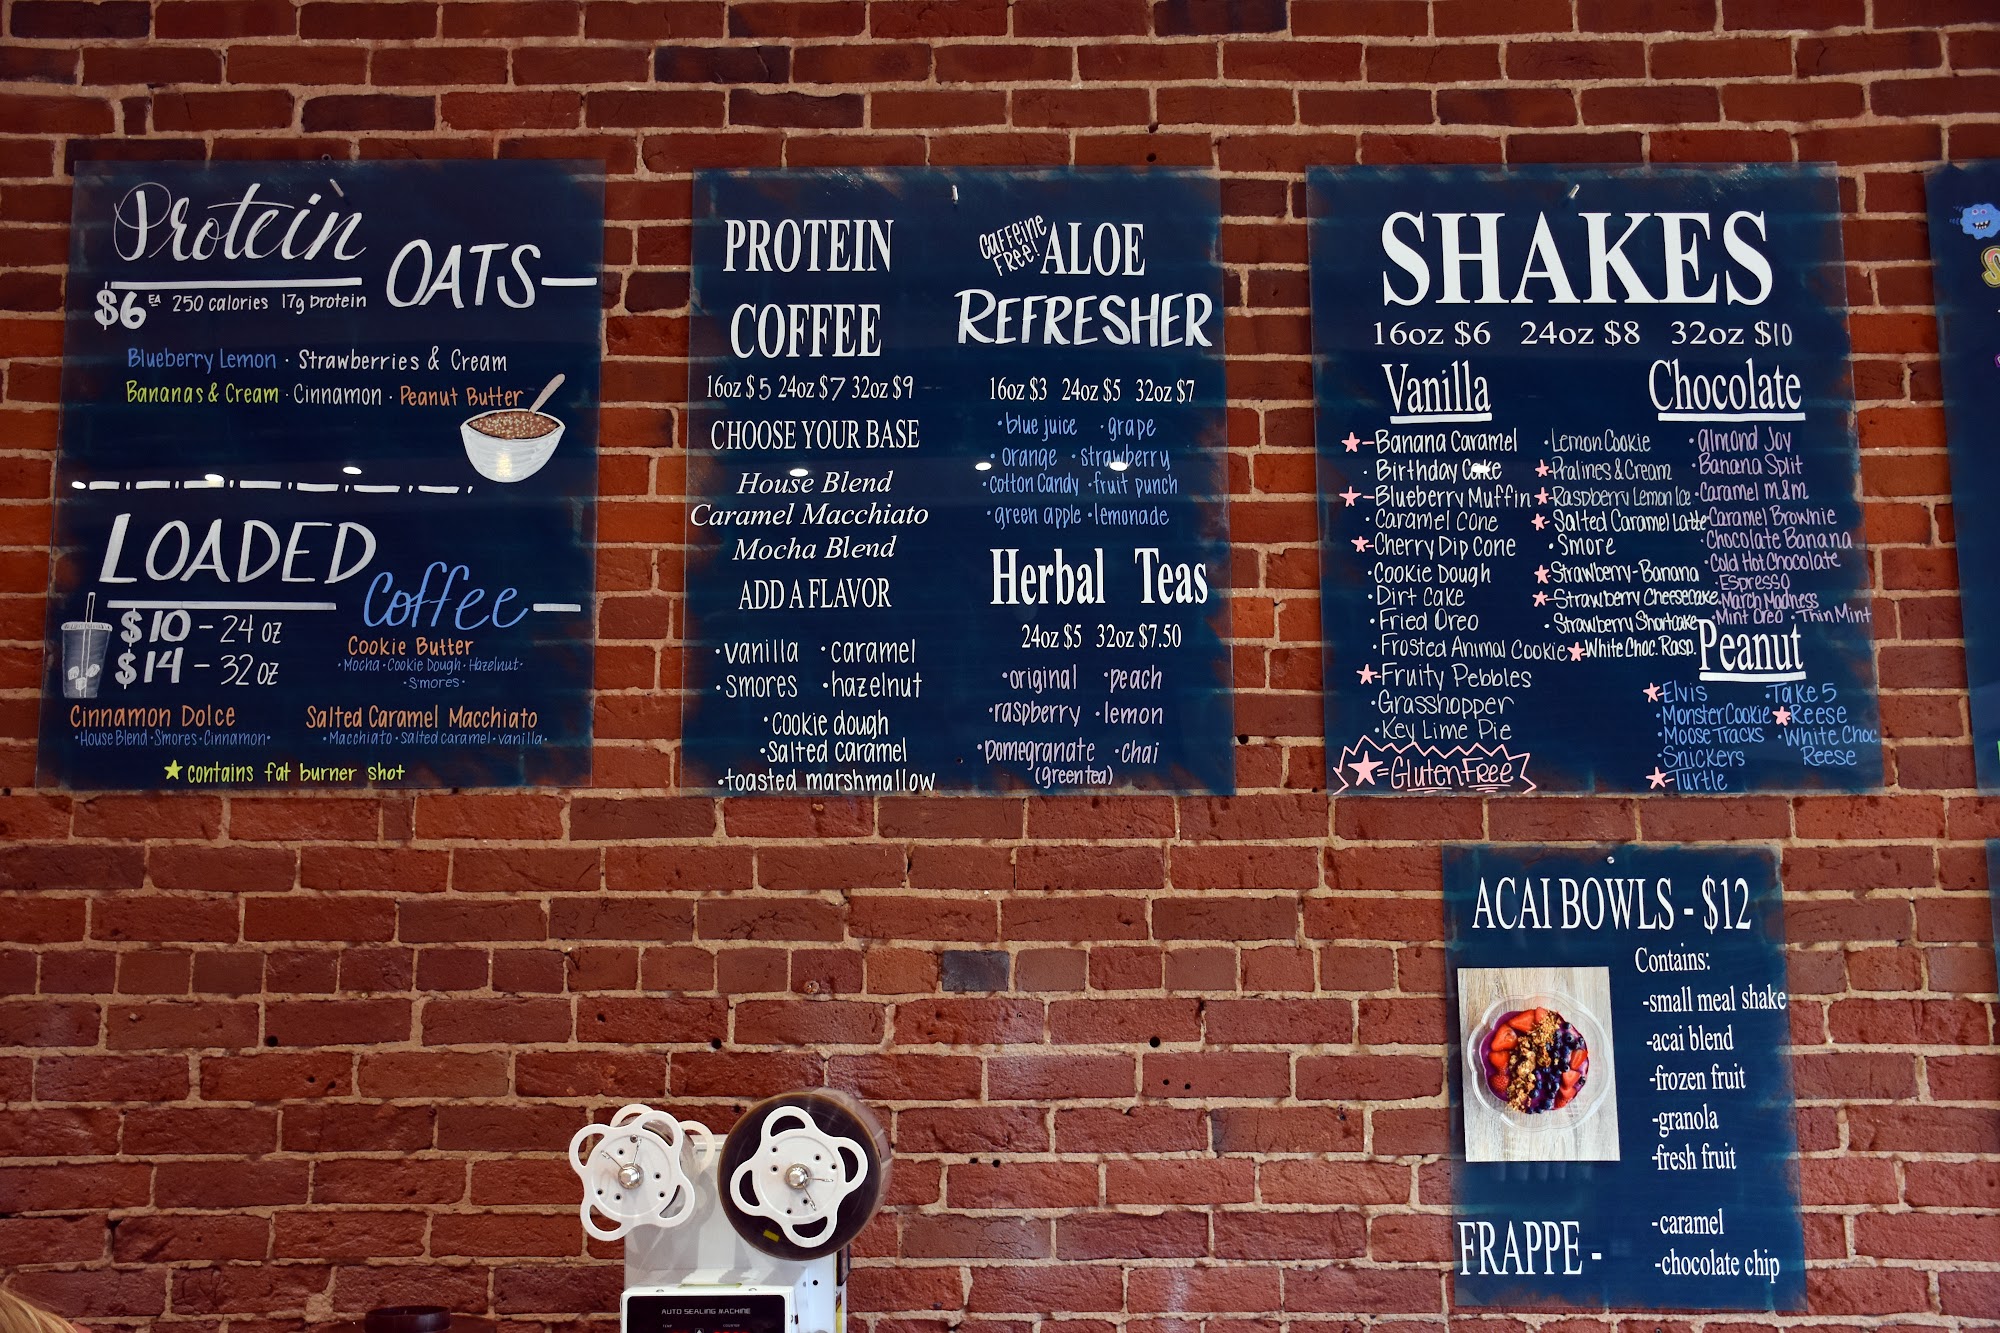 Protein
OATS
$6 EA 250 calories 17g protein
Blueberry Lemon · Strawberries & Cream
Bananas & Cream · Cinnamon · Peanut Butter
LOADED
Coffee
$10 - 24 oz
$14 - 32 oz
Cookie Butter
·Mocha·Cookie Dough·Hazelnut·
·S'mores·
Cinnamon Dolce
·House Blend·Smores·Cinnamon·
Salted Caramel Macchiato
·Macchiato·salted caramel·vanilla·
★contains fat burner shot
PROTEIN
COFFEE
16oz $5 24oz $7 32oz $9
CHOOSE YOUR BASE
House Blend
Caramel Macchiato
Mocha Blend
ADD A FLAVOR
·vanilla ·caramel
·smores ·hazelnut
·cookie dough
·salted caramel
·toasted marshmallow
Caffeine
Free!
ALOE
REFRESHER
16oz $3 24oz $5 32oz $7
·blue juice ·grape
·orange ·strawberry
·cotton candy ·fruit punch
·green apple ·lemonade
Herbal Teas
24oz $5 32oz $7.50
·original ·peach
·raspberry ·lemon
·pomegranate ·chai
(green tea)
SHAKES
16oz $6 24oz $8 32oz $10
Vanilla
★-Banana Caramel
·Birthday Cake
★-Blueberry Muffin
·Caramel Cone
★-Cherry Dip Cone
·Cookie Dough
·Dirt Cake
·Fried Oreo
·Frosted Animal Cookie
★-Fruity Pebbles
·Grasshopper
·Key Lime Pie
★=Gluten Free
·Lemon Cookie
★-Pralines & Cream
★-Raspberry Lemon Ice
★-Salted Caramel Latte
·Smore
★-Strawberry-Banana
★-Strawberry Cheesecake
·Strawberry Shortcake
★-White Choc. Rasp.
Chocolate
·Almond Joy
·Banana Split
·Caramel M&M
·Caramel Brownie
·Chocolate Banana
·Cold Hot Chocolate
·Espresso
·March Madness
·Mint Oreo ·Thin Mint
Peanut
★-Elvis
·Monster Cookie
·Moose Tracks
·Snickers
★-Turtle
·Take 5
★-Reese
·White Choc
Reese
ACAI BOWLS - $12
Contains:
-small meal shake
-acai blend
-frozen fruit
-granola
-fresh fruit
FRAPPE -
-caramel
-chocolate chip
AUTO SEALING MACHINE